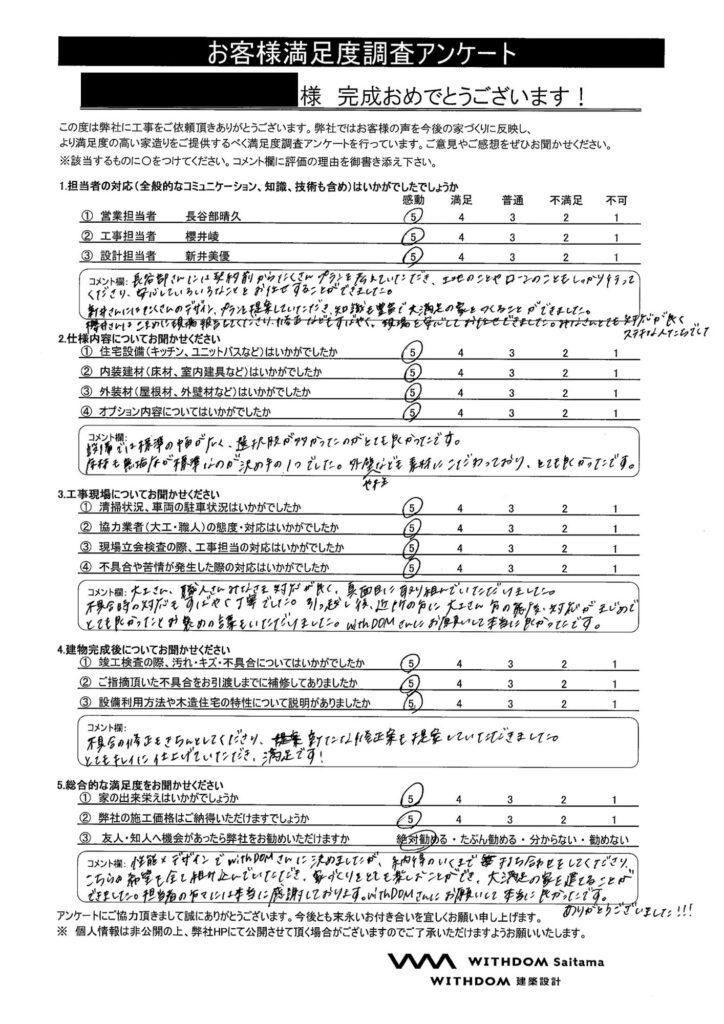 お客様満足度調査アンケート
様 完成おめでとうございます！
この度は弊社に工事をご依頼頂きありがとうございます。弊社ではお客様の声を今後の家づくりに反映し、
より満足度の高い家造りをご提供するべく満足度調査アンケートを行っています。ご意見やご感想をぜひお聞かせください。
※該当するものに○をつけてください。コメント欄に評価の理由を御書き添え下さい。
1.担当者の対応（全般的なコミュニケーション、知識、技術も含め）はいかがでしたでしょうか
感動 満足 普通 不満足 不可
① 営業担当者 長谷部晴久 5 4 3 2 1
② 工事担当者 櫻井崚 5 4 3 2 1
③ 設計担当者 新井美優 5 4 3 2 1
コメント欄: 長谷部さんには契約前からたくさんプランを考えていただき、土地のことやローンのこともしっかりやって
くださり、安心していろいろなことをお任せすることができました。
新井さんにはたくさんのデザイン、プランを提案していただき、知識も豊富で大満足の家をつくることができました。
櫻井さんはこまめに現場報告してくださり、修正などもすばやく、現場を安心してお任せできました。みなさんとても対応が良く
ステキな人たちでした
2.仕様内容についてお聞かせください
① 住宅設備（キッチン、ユニットバスなど）はいかがでしたか 5 4 3 2 1
② 内装建材（床材、室内建具など）はいかがでしたか 5 4 3 2 1
③ 外装材（屋根材、外壁材など）はいかがでしたか 5 4 3 2 1
④ オプション内容についてはいかがでしたか 5 4 3 2 1
コメント欄:
設備では標準の幅が広く、選択肢が多かったのがとても良かったです。
床材も無垢床が標準なのが決め手の1つでした。外壁なども素材にこだわっており、とても良かったです。
3.工事現場についてお聞かせください
① 清掃状況、車両の駐車状況はいかがでしたか 5 4 3 2 1
② 協力業者（大工・職人）の態度・対応はいかがでしたか 5 4 3 2 1
③ 現場立会検査の際、工事担当の対応はいかがでしたか 5 4 3 2 1
④ 不具合や苦情が発生した際の対応はいかがでしたか 5 4 3 2 1
コメント欄: 大工さん、職人さんみなさま対応が良く、真面目に取り組んでいただけました。
不具合時の対応もすばやく丁寧でした。引っ越し後、近所の方に大工さん方の態度・対応がまじめで
とても良かったとお褒めの言葉をいただけました。withDOMさんにお願いして本当に良かったです。
4.建物完成後についてお聞かせください
① 竣工検査の際、汚れ・キズ・不具合についてはいかがでしたか 5 4 3 2 1
② ご指摘頂いた不具合をお引渡しまでに補修してありましたか 5 4 3 2 1
③ 設備利用方法や木造住宅の特性について説明がありましたか 5 4 3 2 1
コメント欄:
不具合の修正もきちんとしてくださり、新たな修正案も提案していただきました。
とてもキレイに仕上げていただき、満足です！
5.総合的な満足度をお聞かせください
① 家の出来栄えはいかがでしょうか 5 4 3 2 1
② 弊社の施工価格はご納得いただけますでしょうか 5 4 3 2 1
③ 友人・知人へ機会があったら弊社をお勧めいただけますか 絶対勧める・たぶん勧める・分からない・勧めない
コメント欄: 性能×デザインでwithDOMさんに決めましたが、納得のいくまで打ち合わせをしてくださり、
こちらの希望も全て組み込んでいただき、家づくりをとても楽しむことができ、大満足の家を建てることが
できました。担当者の方々には本当に感謝しております。withDOMさんにお願いして本当に良かったです。
ありがとうございました!!!
アンケートにご協力頂きまして誠にありがとうございます。今後とも末永いお付き合いを宜しくお願い申し上げます。
※ 個人情報は非公開の上、弊社HPにて公開させて頂く場合がございますのでご了承いただけますようお願いいたします。
WITHDOM Saitama
WITHDOM 建築設計